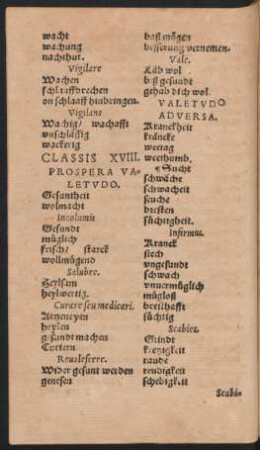 wacht
wachung
nachthut.
Vigilare
Wachen
schlaaffbrechen
on schlaaff hinbringen.
Vigilans
Wachtig/ wachafft
vnschläffig
wackerig
CLASSIS XVIII.
PROSPERA VA-
LETVDO.
Gesuntheit
wolmacht
Incolumis
Gesundt
müglich
frisch/ starck
wollmügend
Salubre.
Heylsam
heylwertig.
Curare seu medicari.
Artzneyen
heylen
gesundt machen
Curiern
Reualescere.
Wider gesunt werden
genesen
bass mögen
besserung vernemen.
Vale.
Lab wol
biss gesundt
gehab dich wol.
VALETVDO
ADVERSA.
Kranckheit
kräncke
weetag
weethumb.
Sucht
schwäche
schwachheit
seuche
bresten
süchtigheit.
Infirmus.
Kranck
siech
vngesundt
schwach
vnuermüglich
mügloss
bresthafft
süchtig
Scabies.
Grindt
kretzigkeit
raude
reudigkeit
schebigkeit
Scabi-